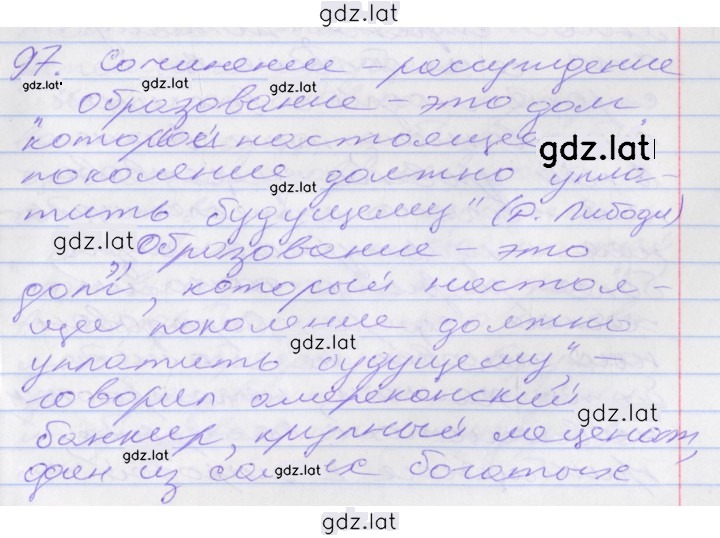 gdz.lat
97. Сочинение – рассуждение
gdz.lat gdz.lat gdz.lat
Образование – это дом
"который настоящее
gdz.lat
поколение должно упла-
gdz.lat
тить будущему" (Р. Либоди)
gdz.lat
„Образование – это
долг, который настоя-
щее поколение должно
gdz.lat
уплатить будущему", –
говорил американский
gdz.lat
банкир, крупный меценат,
gdz.lat gdz.lat
один из самых богатых
gdz.lat